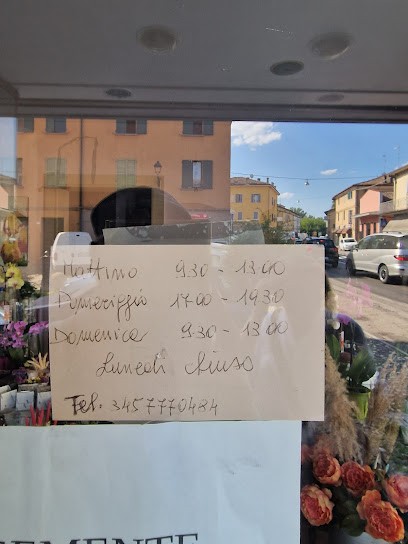 Mattino 930 - 1300
Pomeriggio 1700 - 1930
Domenica 930 - 1300
Lunedì chiuso
Tel. 3457770484
EMENTE